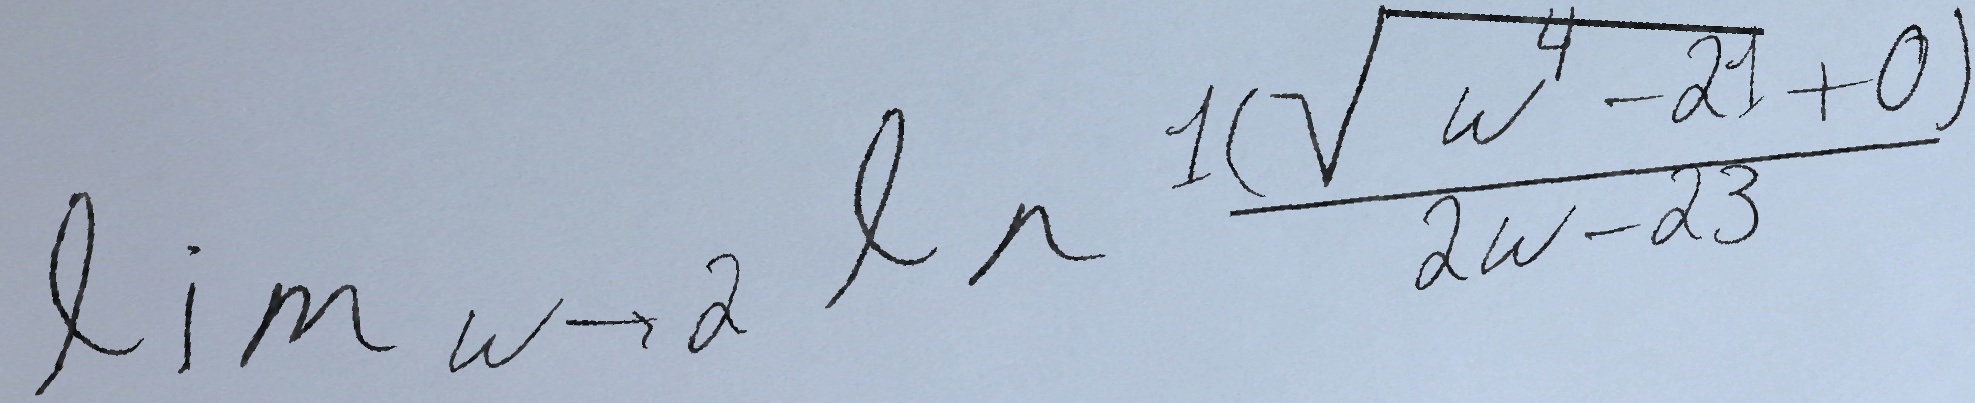 \lim_{w \to 2} \ln \frac{1(\sqrt{w^4 - 21} + 0)}{2w - 23}